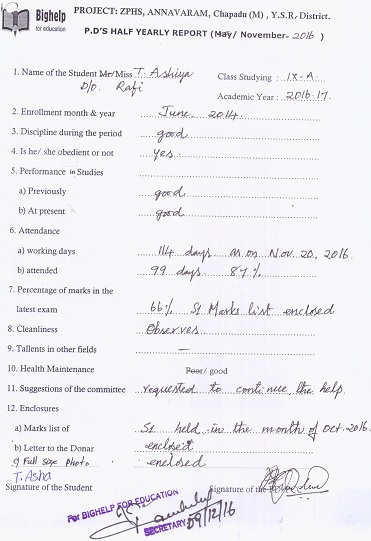 Bighelp
for education
PROJECT: ZPHS, ANNAVARAM, Chapadu (M) , Y.S.R. District.
P.D'S HALF YEARLY REPORT (May/ November- 2016 )
1. Name of the Student Mr/Miss T. Ashiya Class Studying : IX-A
D/o. Rafi Academic Year : 2016-17.
2. Enrollment month & year June 2014.
3. Discipline during the period good
4. Is he/ she obedient or not yes
5. Performance in Studies
a) Previously good
b) At present good
6. Attendance
a) working days 114 days as on Nov. 20, 2016.
b) attended 99 days 87%
7. Percentage of marks in the
latest exam 66% S1 Marks list enclosed
8. Cleanliness Observes
9. Tallents in other fields —
10. Health Maintenance Poor/ good
11. Suggestions of the committee requested to continue the help.
12. Enclosures
a) Marks list of S1 held in the month of Oct. 2016.
b) Letter to the Donar enclosed
c) Full size photo enclosed
T. Asha
Signature of the Student Signature of the
For BIGHELP FOR EDUCATION
SECRETARY 09/12/16